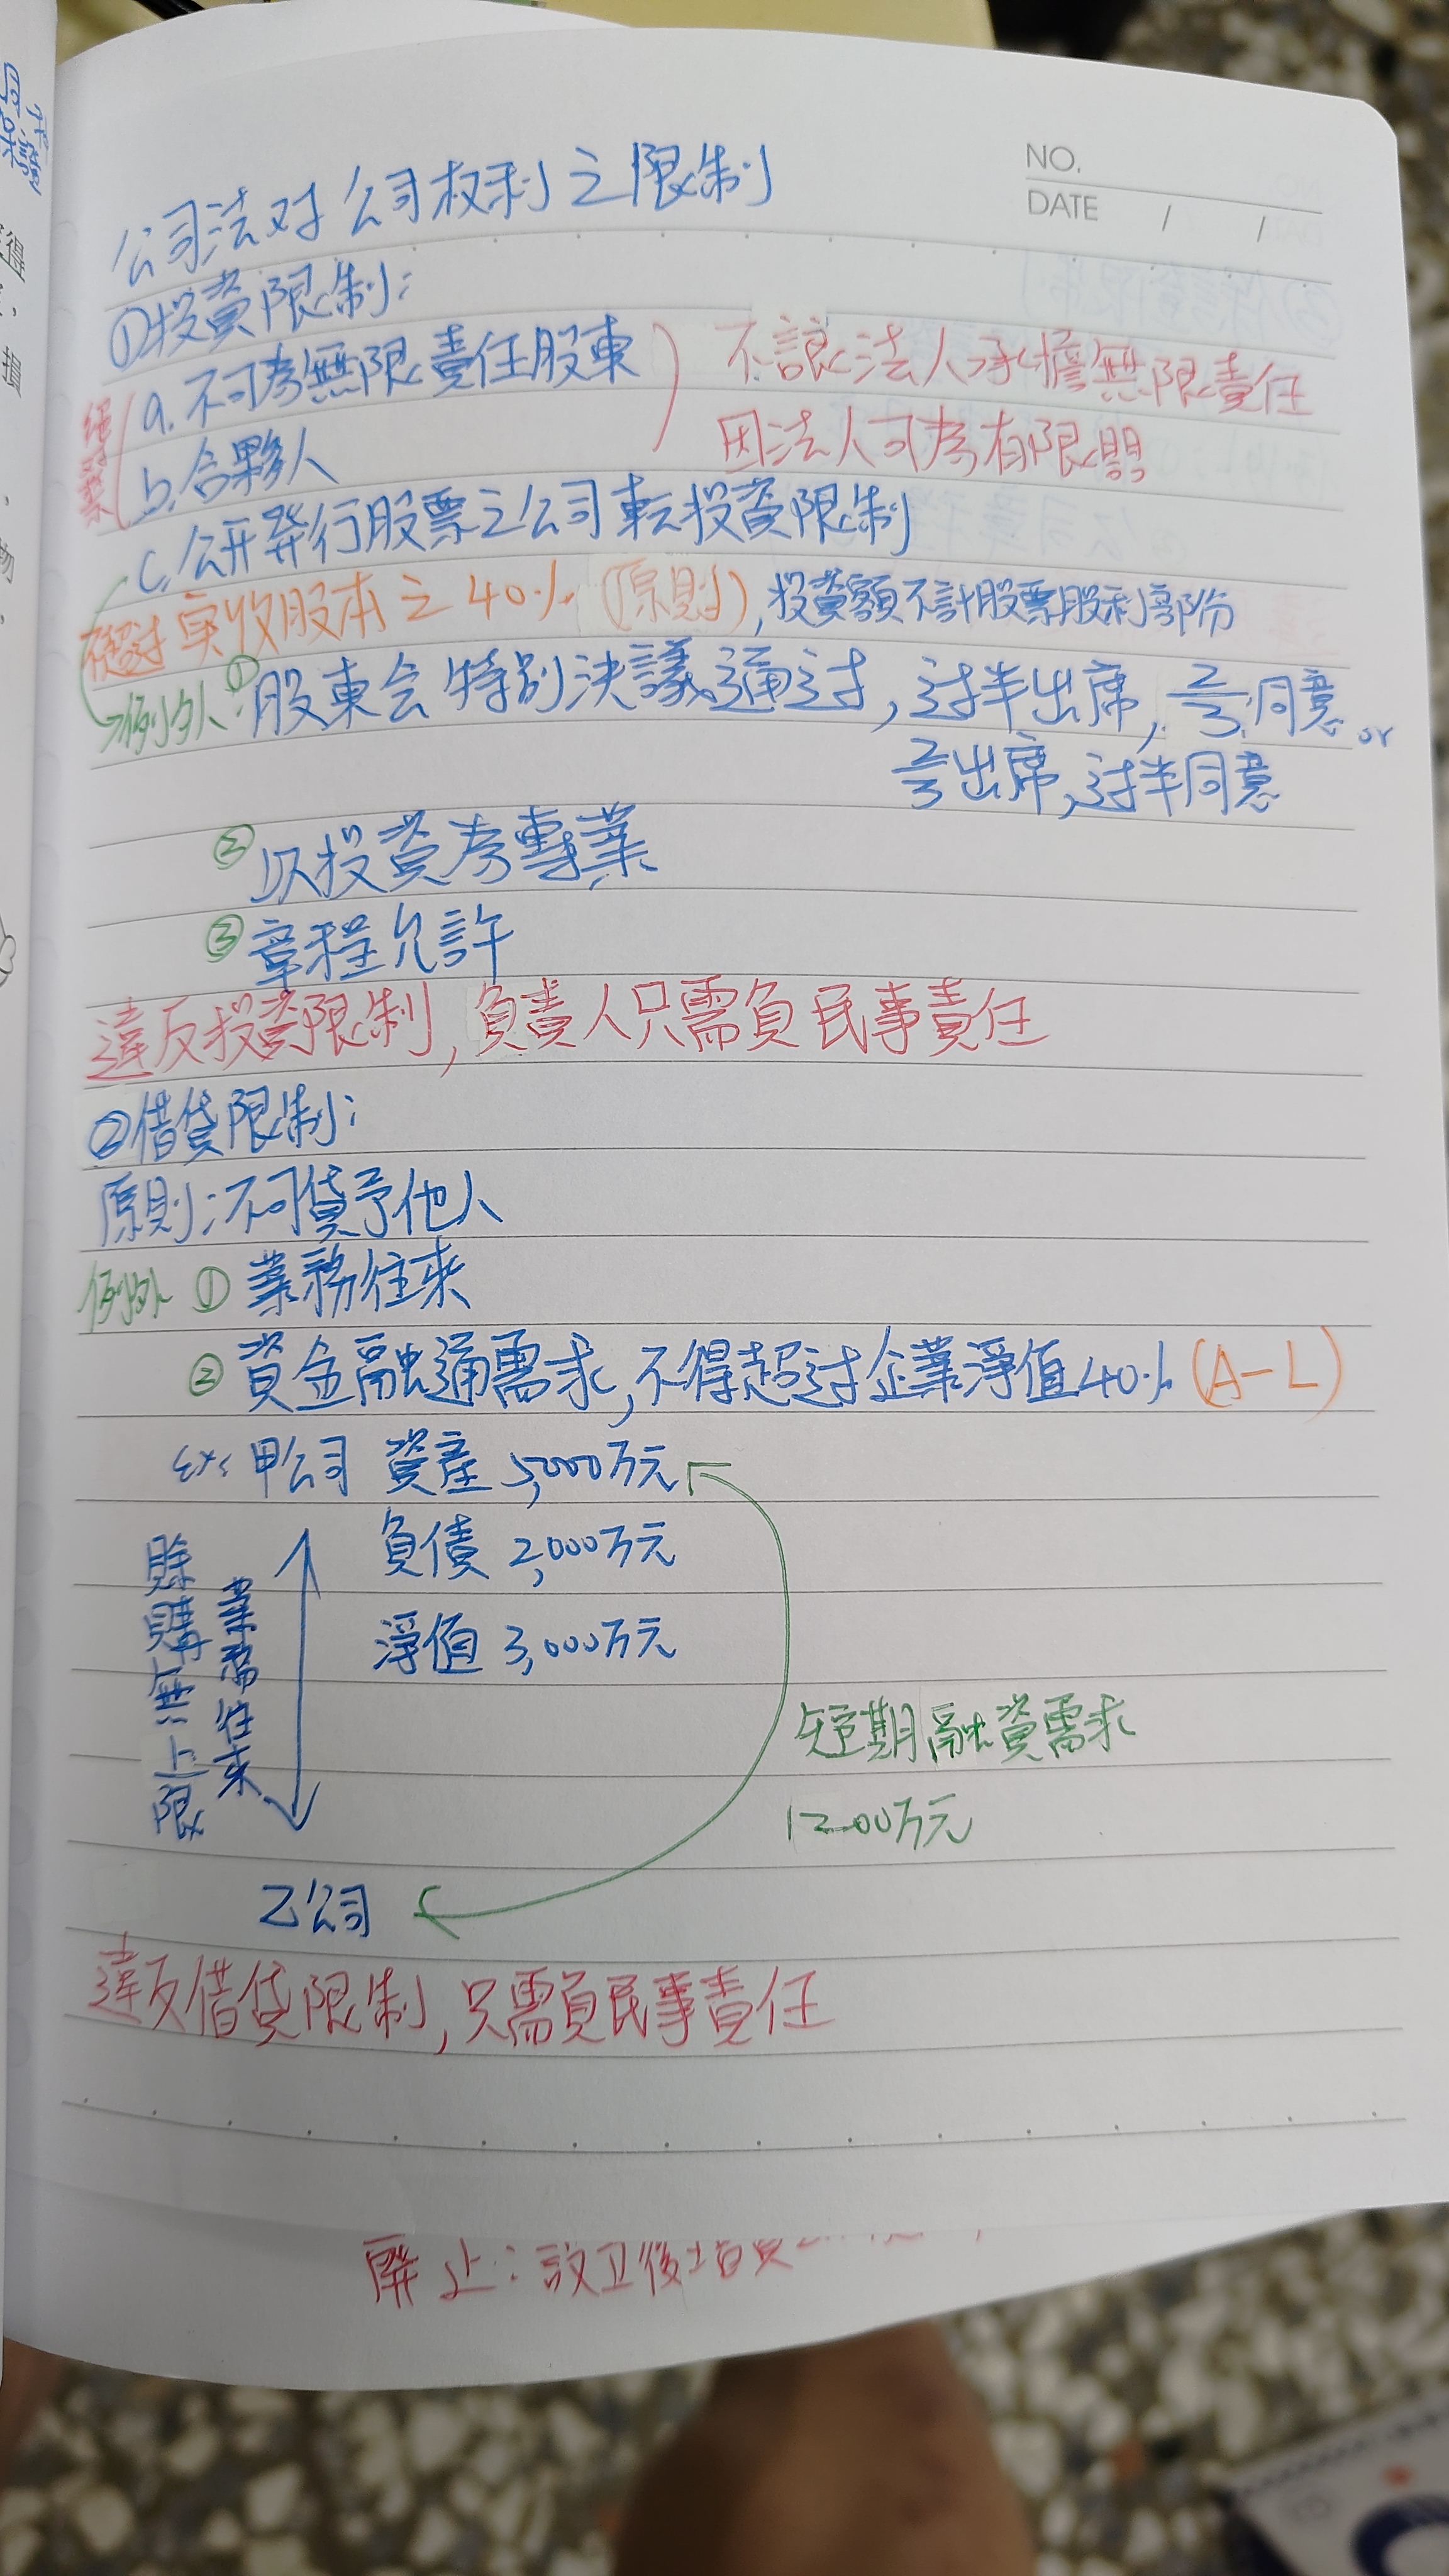 NO.
DATE / /
公司法对公司权利之限制
①投資限制:
絕對禁
a.不可為無限責任股東
b.合夥人
不讓法人承擔無限責任
因法人可為有限
c.公开發行股票之公司転投資限制
實收股本之40%(原則),投資額不計股票股利部份
例外:①股東会特別決議通过,过半出席,2/3同意or
2/3出席,过半同意
②以投資為專業
③章程允許
違反投資限制,負責人只需負民事責任
②借貸限制:
原則:不可貸予他人
例外 ①業務往來
②資金融通需求,不得超过企業淨值40%(A-L)
ex:甲公司 資產5,000万元
負債2,000万元
淨值3,000万元
業務往來
賒購無上限
短期融資需求
1200万元
乙公司
違反借貸限制,只需負民事責任
止:設立後